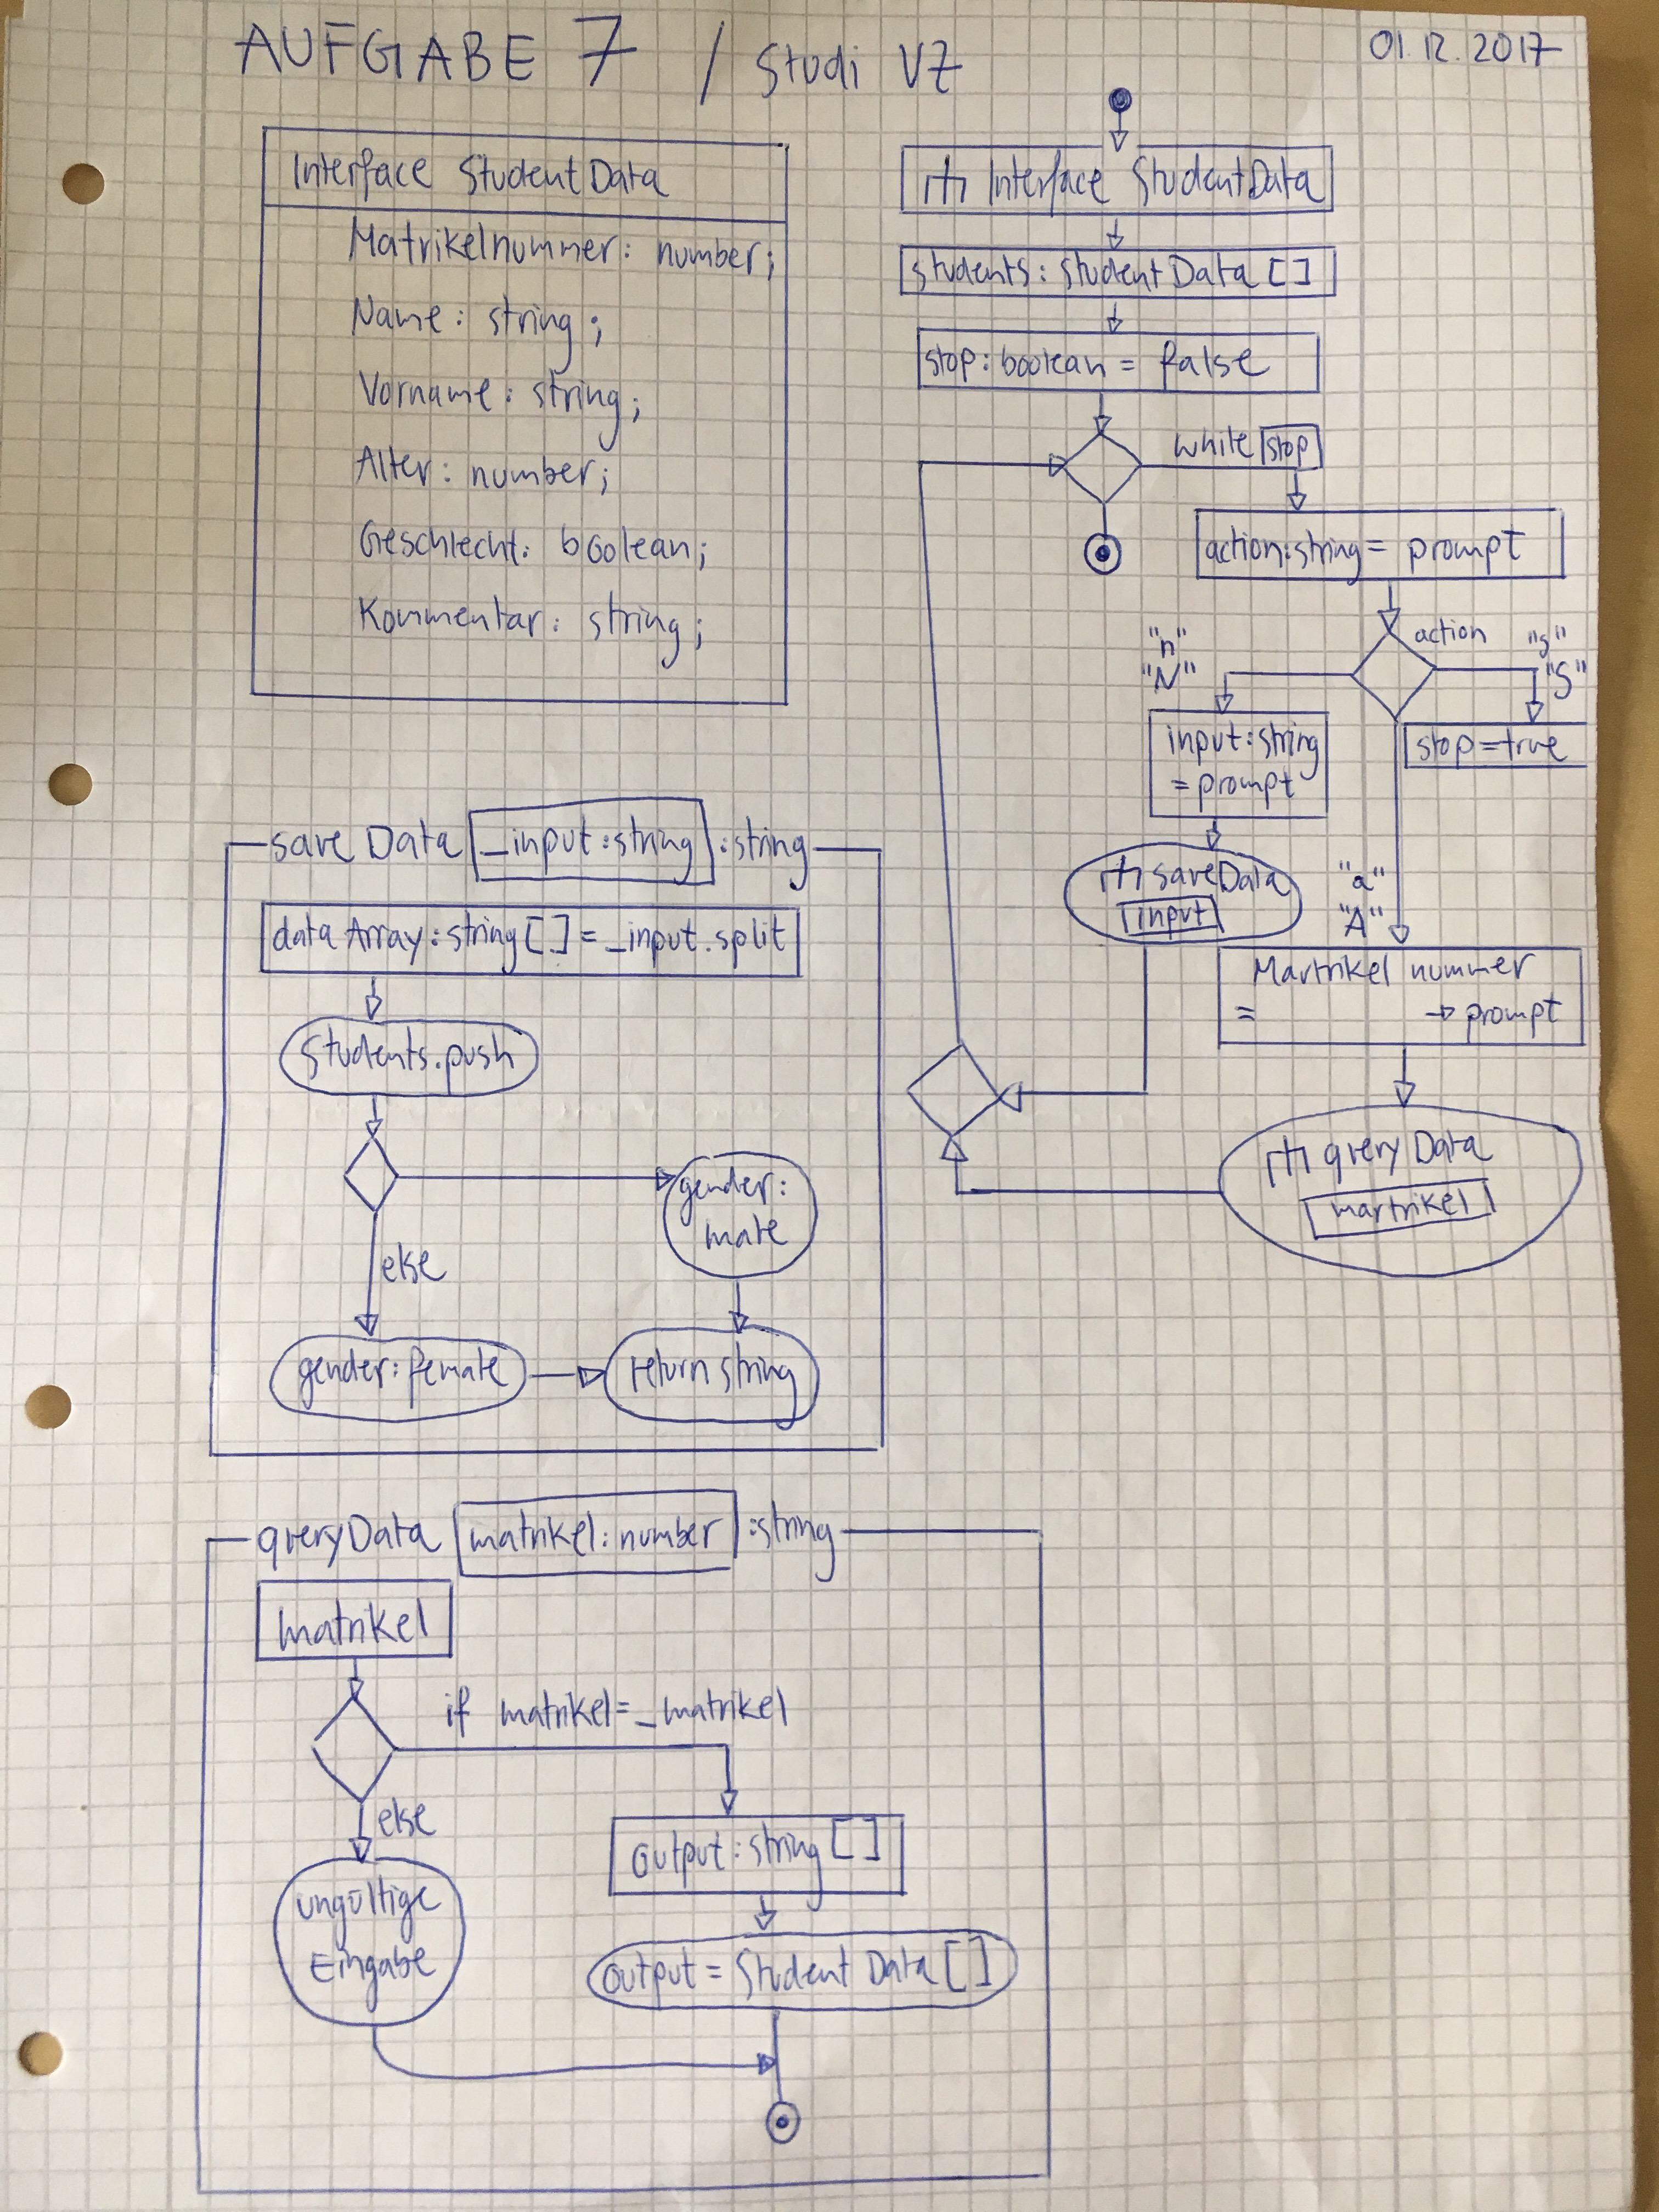 AUFGABE 7 / Studi VZ
01.12.2017
Interface StudentData
Matrikelnummer: number;
Name: string;
Vorname: string;
Alter: number;
Geschlecht: boolean;
Kommentar: string;
Interface StudentData
students: StudentData []
stop: boolean = false
while stop
action: string = prompt
action
"n"
"N"
"s"
"S"
input: string
= prompt
stop = true
saveData
input
"a"
"A"
Martrikel nummer
= → prompt
queryData
martrikel
save Data _input: string : string
data Array: string [] = _input.split
Students.push
gender:
male
else
gender: female
return string
queryData matrikel: number : string
matrikel
if matrikel = _matrikel
else
Output: string []
ungültige
Eingabe
output = Student Data []